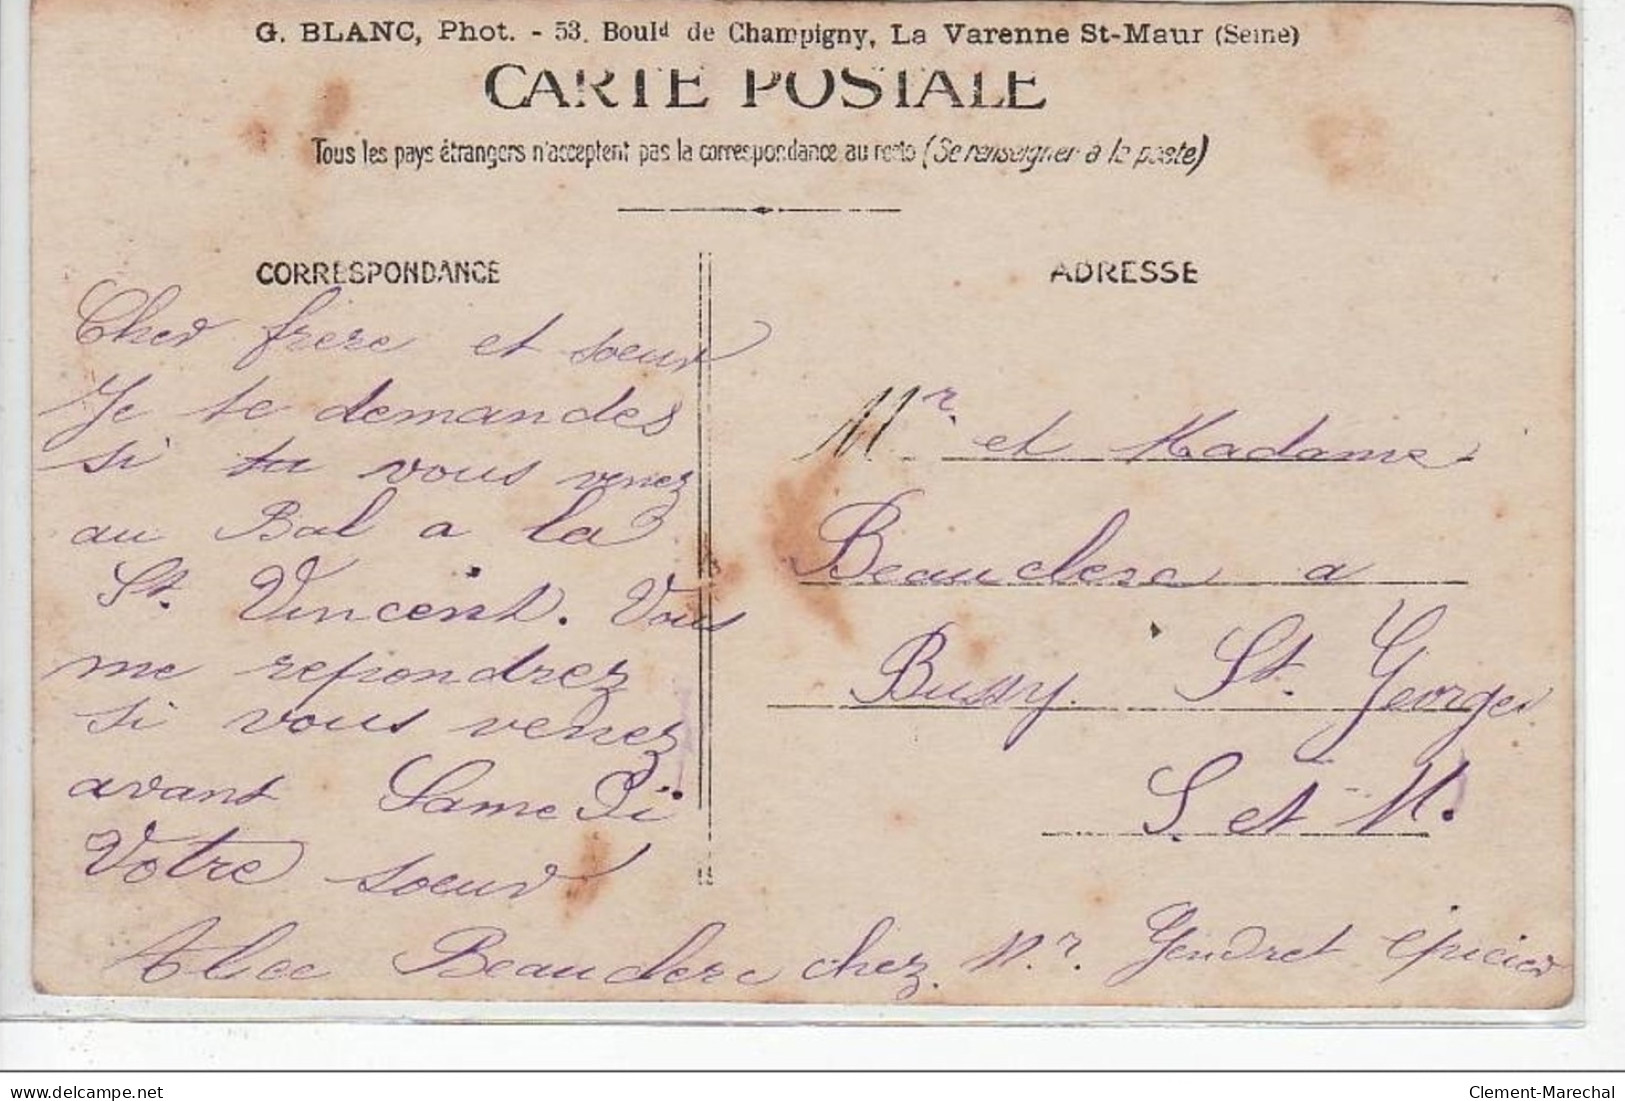 G. BLANC, Phot. - 53. Bould de Champigny, La Varenne St-Maur (Seine)
CARTE POSTALE
Tous les pays étrangers n'acceptent pas la correspondance au recto (Se renseigner à la poste)
CORRESPONDANCE
Cher frère et soeur
Je te demandes
si tu vous venez
au Bal a la
St. Vincent. Vous
me repondrez
si vous venez
avant Same Di
Votre soeur
Alice Beauclerc chez Mr. Gendret épicier
ADRESSE
Mr. et Madame
Beauclerc a
Bussy St. Georges
S. et M.
delcampe.net
Clement-Marechal